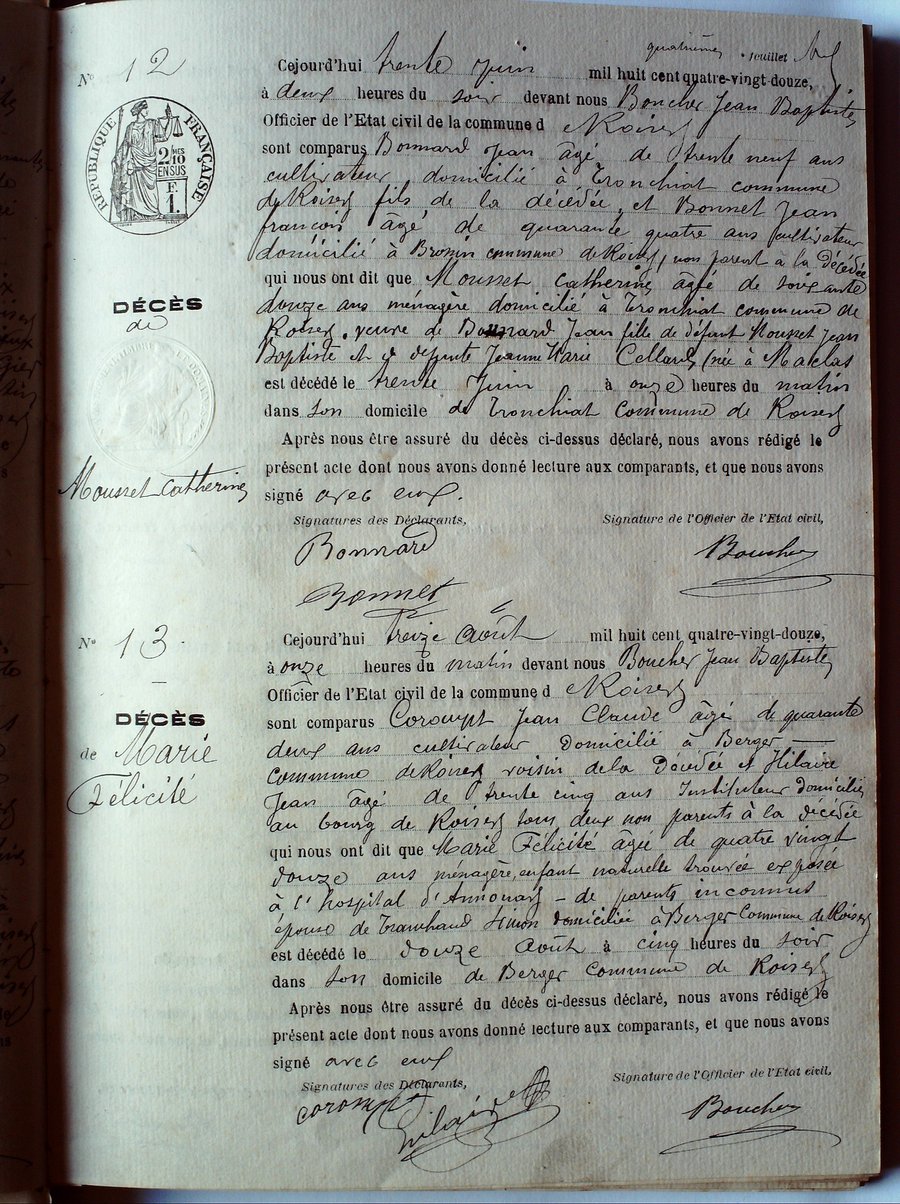 quatrième feuillet
N° 12
RÉPUBLIQUE FRANÇAISE
2/10 MES
EN SUS
F.
1.
DÉCÈS
de
Mousset Catherine
Cejourd'hui trente Juin mil huit cent quatre-vingt-douze,
à deux heures du soir devant nous Boucher Jean Baptiste
Officier de l'Etat civil de la commune d Roisey
sont comparus Bonnard Jean âgé de trente neuf ans
cultivateur domicilié à Tronchiat commune
de Roisey fils de la décédée et Bonnet Jean
françois âgé de quarante quatre ans cultivateur
domicilié à commune de Roisey, non parent à la décédée
qui nous ont dit que Mousset Catherine âgé de soixante
douze ans ménagère domicilié à Tronchiat commune de
Roisey veuve de Bonnard Jean fille de défunt Mousset Jean
Baptiste et de défunte Jeanne Marie (née à Maclas
est décédé le trente Juin à onze heures du matin
dans son domicile de Tronchiat Commune de Roisey
Après nous être assuré du décès ci-dessus déclaré, nous avons rédigé le
présent acte dont nous avons donné lecture aux comparants, et que nous avons
signé avec eux.
Signatures des Déclarants, Signature de l'Officier de l'Etat civil,
Bonnard Boucher
Bonnet
N° 13
DÉCÈS
de Marie
Félicité
Cejourd'hui treize Août mil huit cent quatre-vingt-douze,
à onze heures du matin devant nous Boucher Jean Baptiste
Officier de l'Etat civil de la commune d Roisey
sont comparus Corompt Jean Claude âgé de quarante
deux ans cultivateur domicilié à Berger
commune de Roisey voisin de la et Hilaire
Jean âgé de trente cinq ans Instituteur domicilié
au bourg de Roisey tous deux non parents à la décédée
qui nous ont dit que Marie Félicité âgée de quatre vingt
douze ans ménagère, enfant naturelle trouvée exposée
à l'hospital d'Annonay - de parents inconnus
épouse de Simon domiciliée à Berger Commune de Roisey
est décédé le douze Août à cinq heures du soir
dans son domicile de Berger Commune de Roisey
Après nous être assuré du décès ci-dessus déclaré, nous avons rédigé le
présent acte dont nous avons donné lecture aux comparants, et que nous avons
signé avec eux
Signatures des Déclarants, Signature de l'Officier de l'Etat civil,
corompt Hilaire Boucher